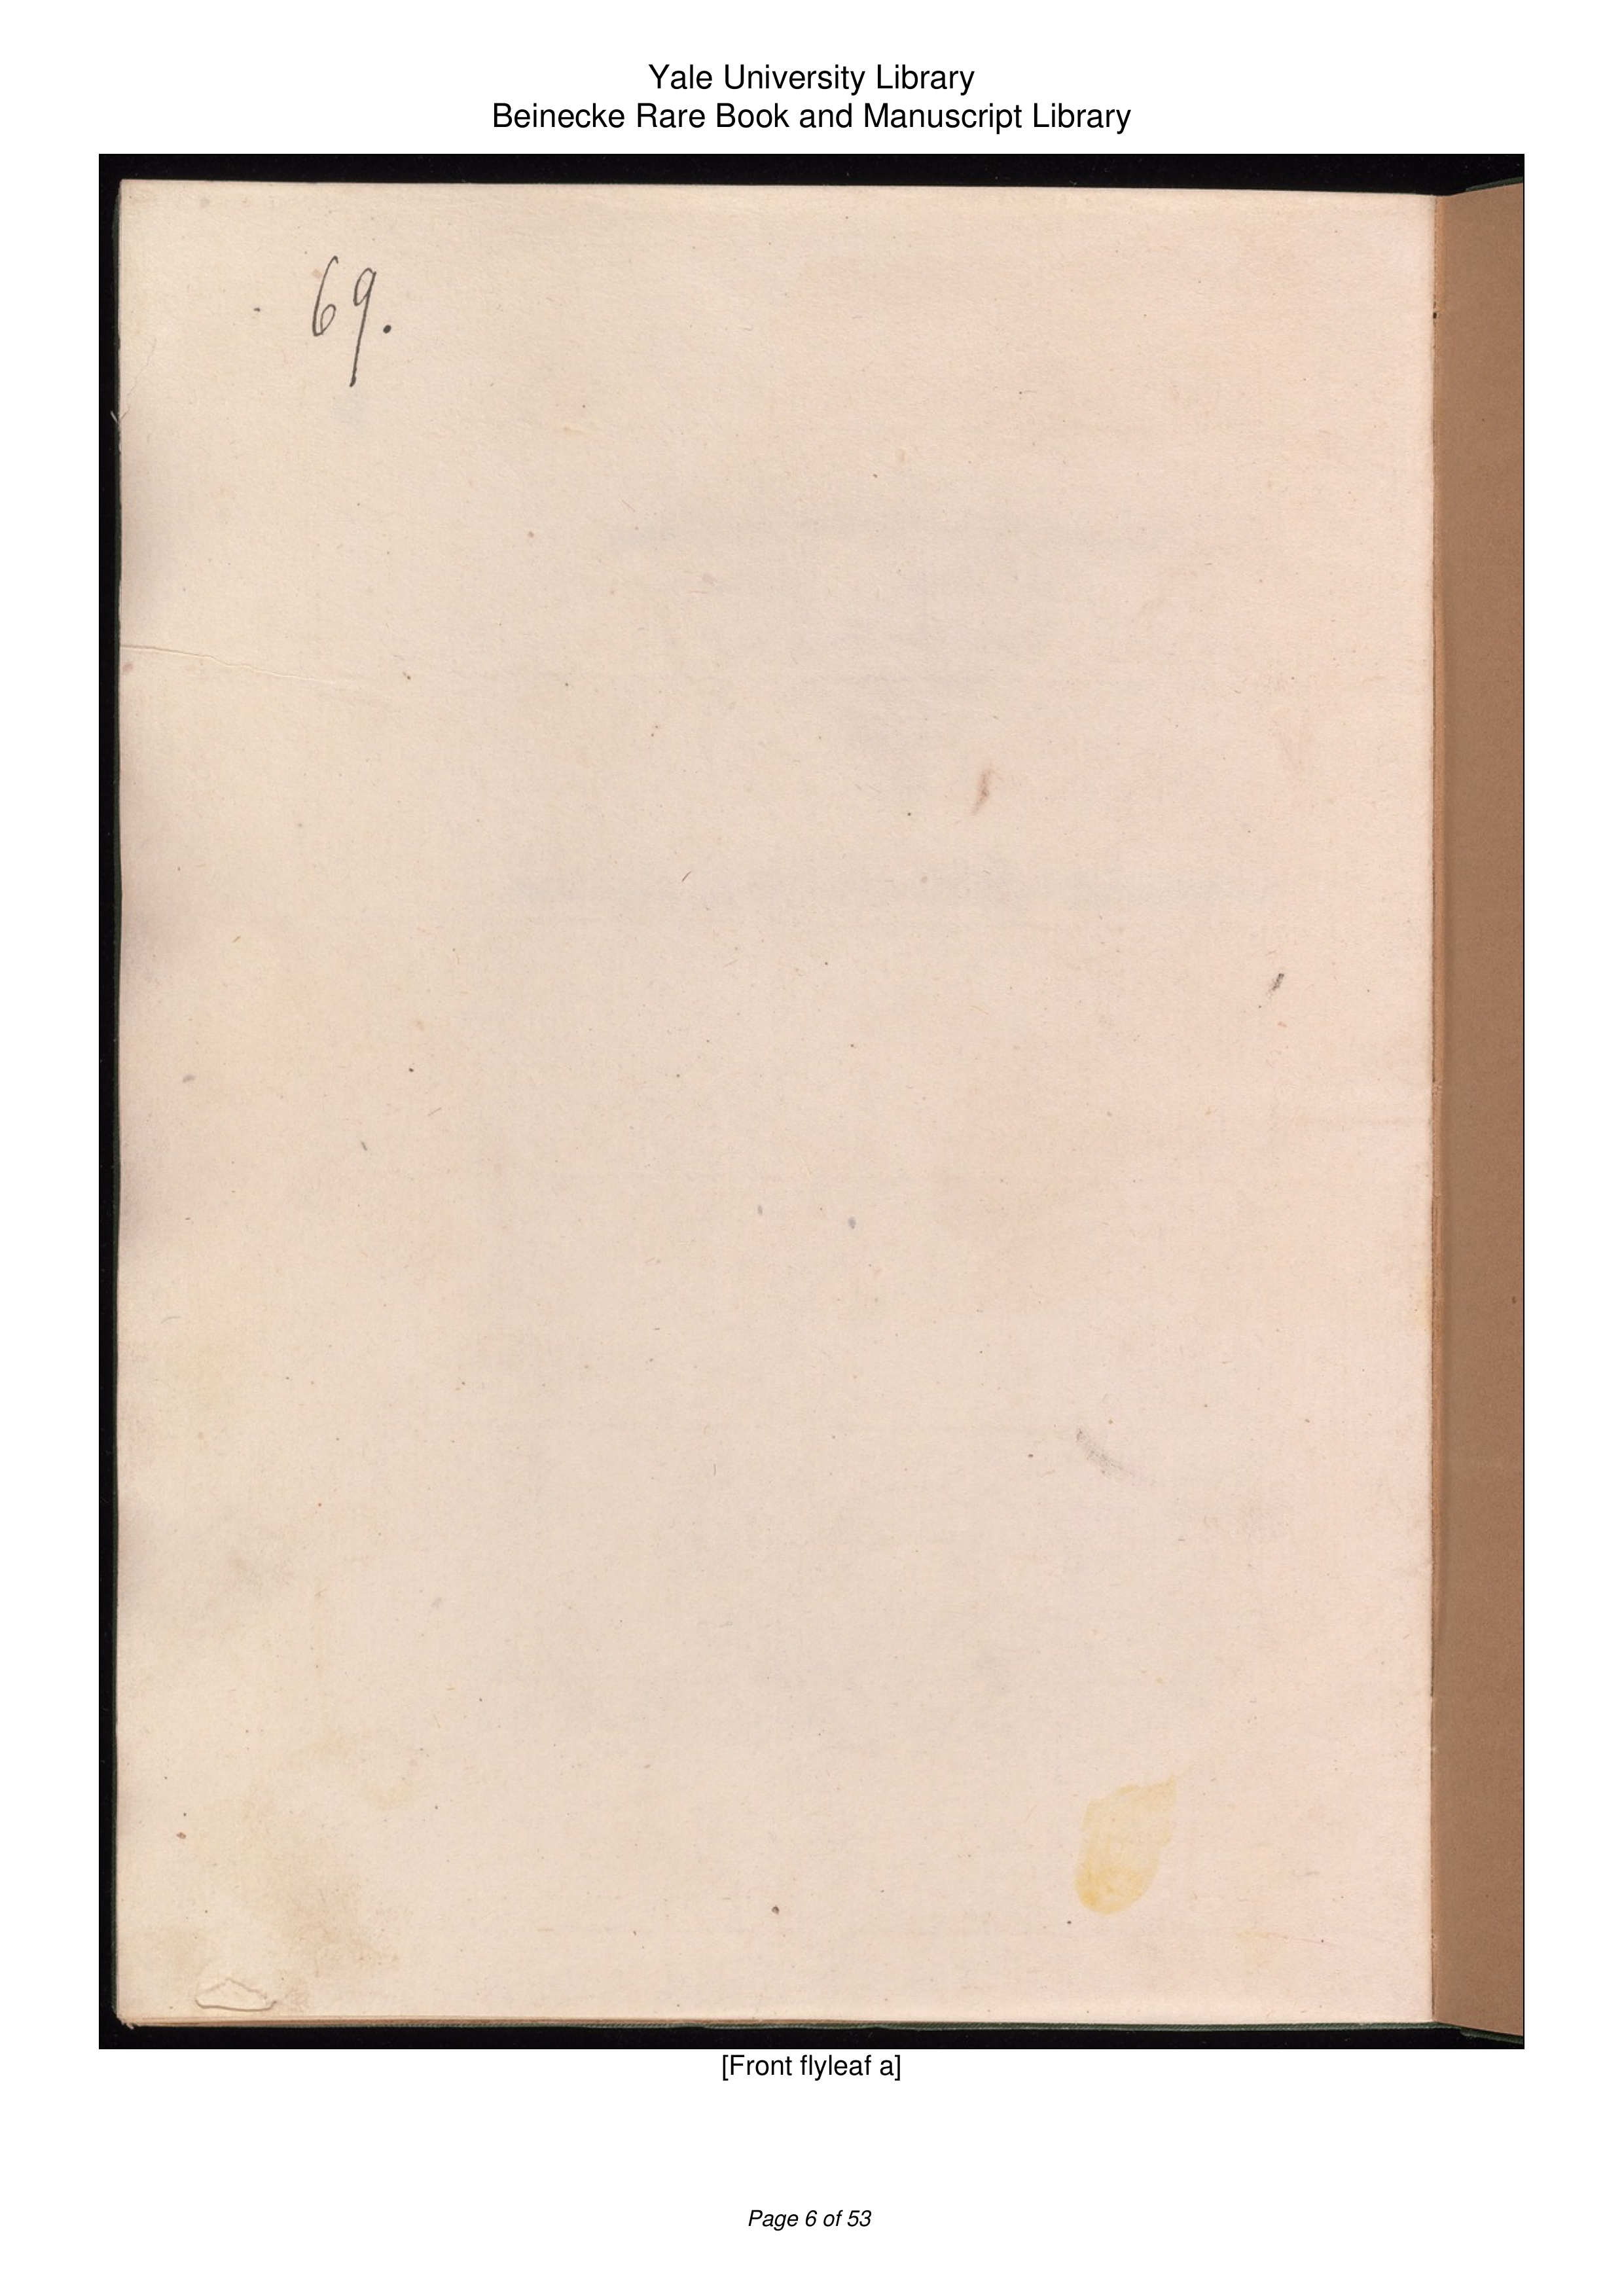 Yale University Library
Beinecke Rare Book and Manuscript Library
69.
[Front flyleaf a]
Page 6 of 53